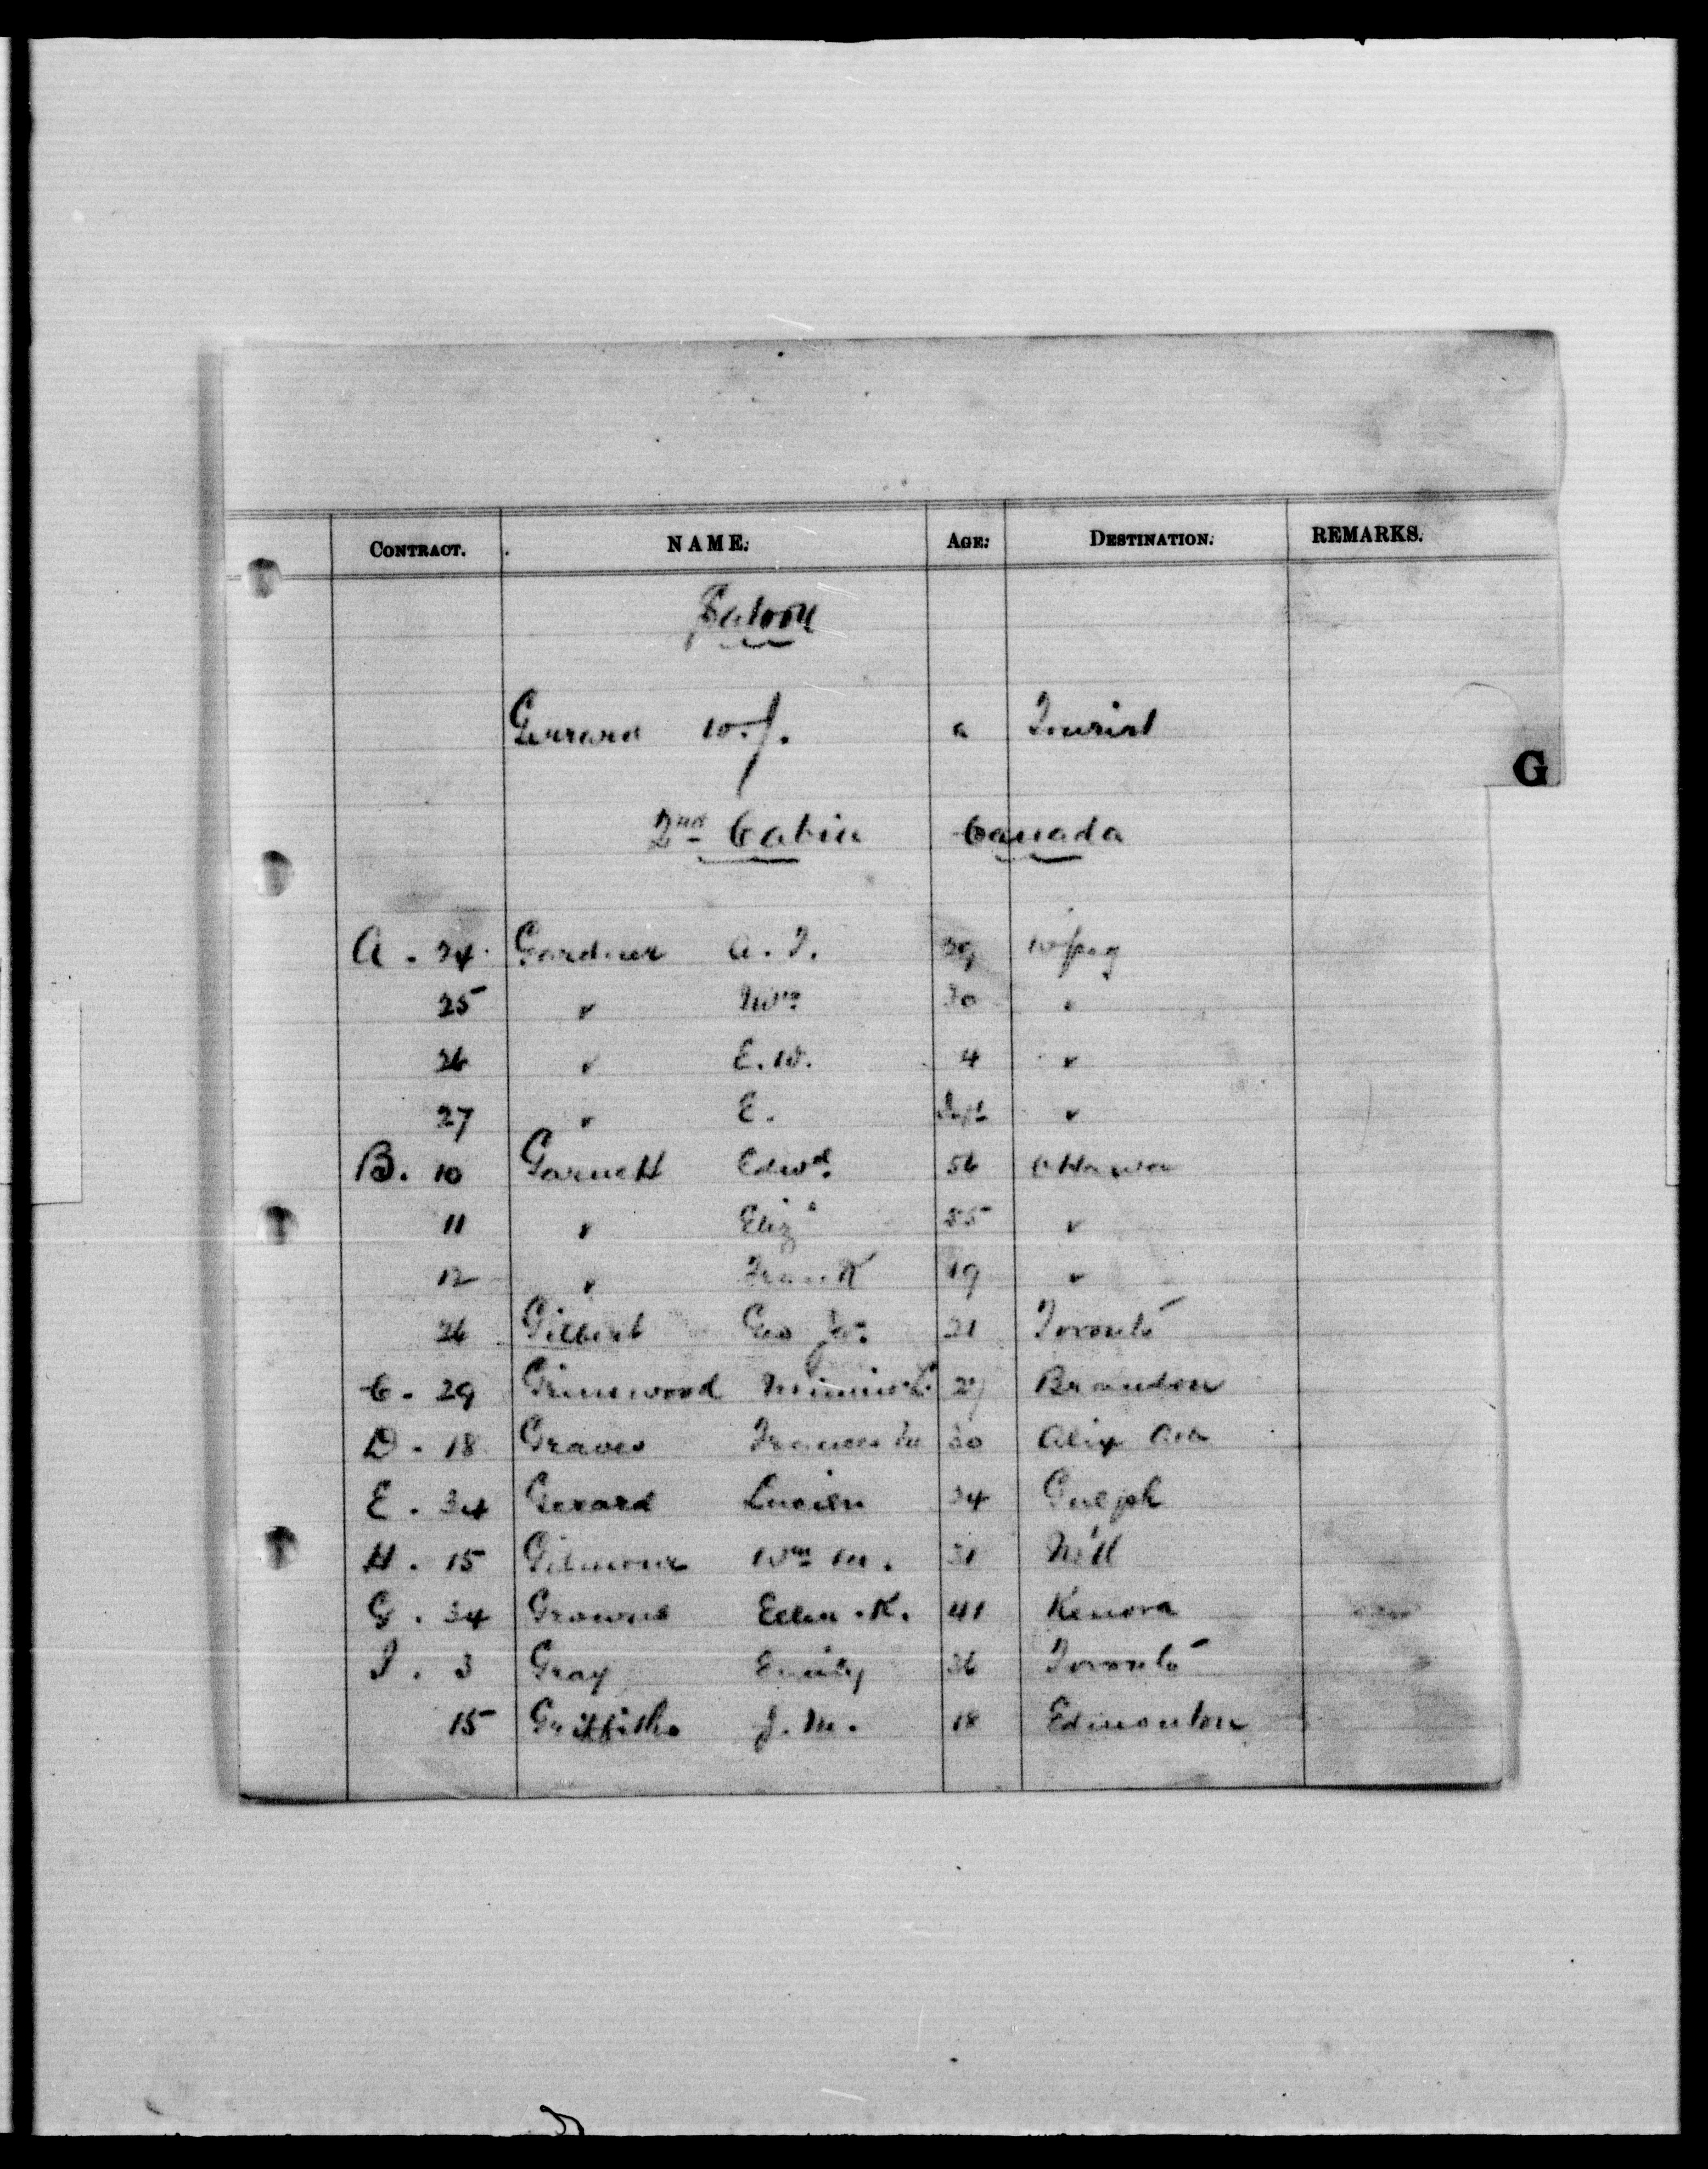 CONTRACT. NAME: AGE: DESTINATION: REMARKS.
Saloon
Gerrard W. J. a Tourist
G
2nd Cabin Canada
A . 24 Gardner A. T. 39 Wpeg
25 " Mrs 30 "
26 " E. W. 4 "
27 " E. Inft "
B. 10 Garnett Edwd. 56 Ottawa
11 " Eliz 55 "
12 " Frank 19 "
26 Gilbert Geo 21 Toronto
C. 29 Grinswood Minnie L. 27 Brandon
D. 18 Graves Frances M 30 Alix Alta
E. 34 Gerard Lucien 34 Guelph
H. 15 Gilmour Wm M. 31
G. 34 Ellen K. 41 Kenora
I. 3 Gray Emily 36 Toronto
15 Griffiths J. M. 18 Edmonton